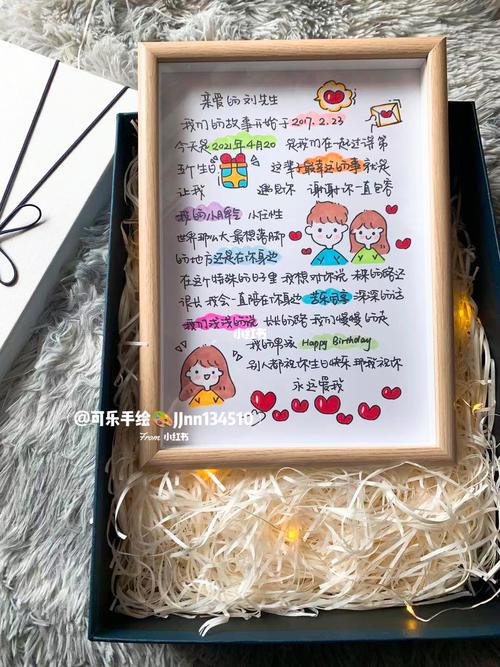 亲爱的刘先生
我们的故事开始于2017.2.23
今天是2021年4月20 是我们在一起过得第
五个生日 这辈子最幸运的事就是
让我 遇见你 谢谢你一直包容
我的小脾气 小任性
世界那么大最想落脚
的地方还是在你身边
在这个特殊的日子里我想对你说 未来的路还
很长我会一直陪在你身边 苦乐同享 深深的话
我们浅浅的说 长长的路 我们慢慢的走
小红书
我的男孩 Happy Birthday
别人都祝你生日快乐 那我祝你
永远爱我
@可乐手绘🎨JJnn134510
From 小红书